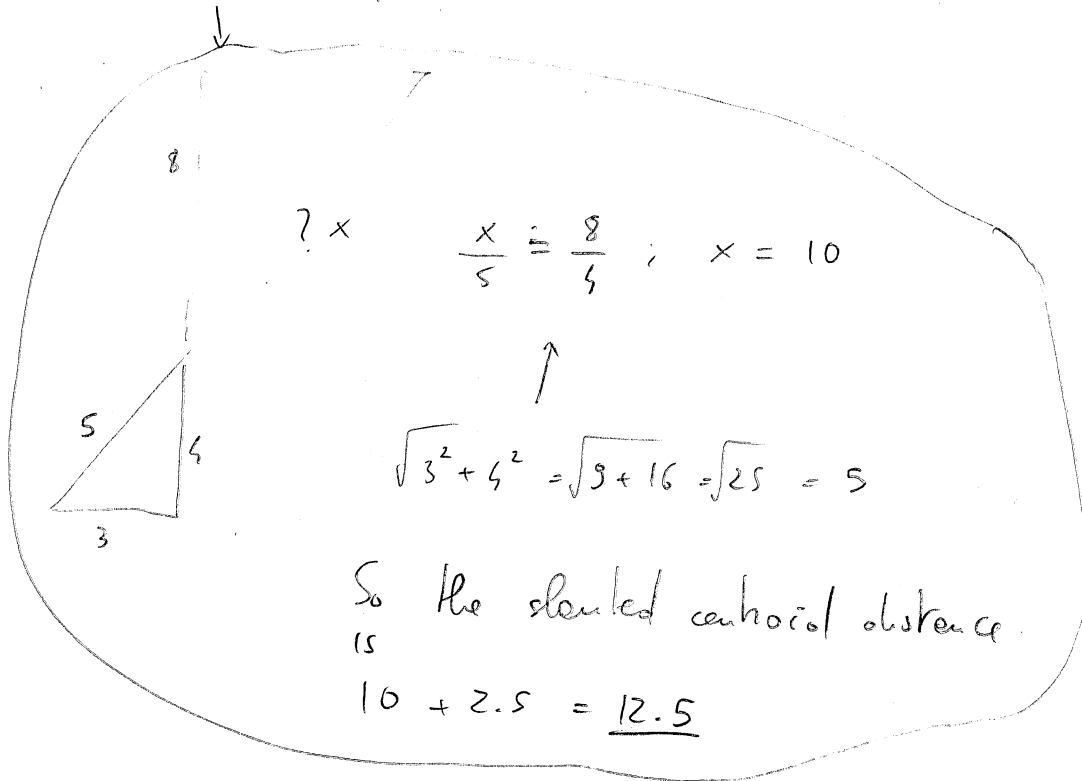 8
? x x/5 = 8/4 ; x = 10
5
4
3
√3² + 4² = √9 + 16 = √25 = 5
So the slanted centroid distance
is
10 + 2.5 = 12.5